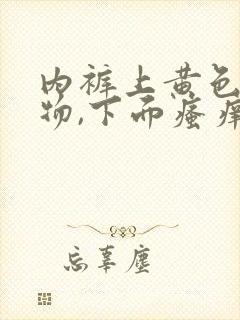 内裤上黄色
物,下面瘙痒
忘辜尘